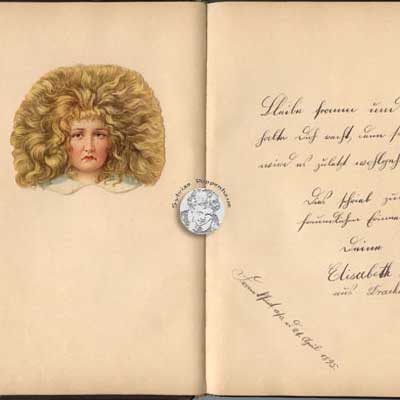 Bleibe fromm und
halte Dich recht denn
wird es zuletzt wohlgeh
Dies schrieb zur
freundlichen Erinner
Deine
Elisabeth
aus
d. 26. April 1895.
Sylvias Puppenheim